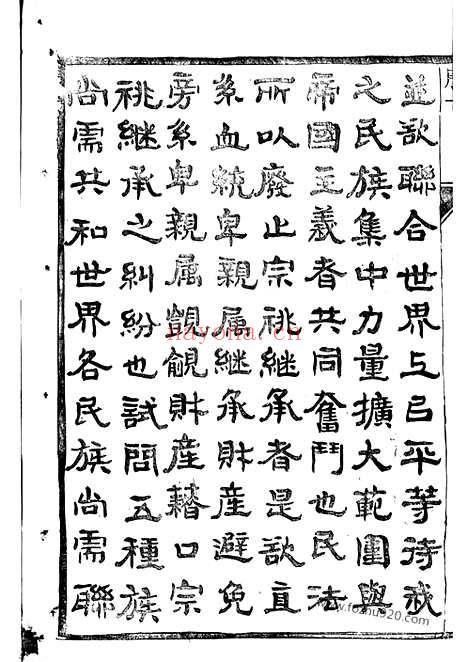 並欲聯合世界上㠯平等待我
之民族集中力量擴大範圍與
帝國主義者共同奮鬥也民法
所以廢止宗祧継承者是欲直
系血統卑親属継承財産避免
旁系卑親属覬覦財産藉口宗
祧継承之糾紛也試問五種族
尚需共和世界各民族尚需聯
nayona.cn
www.fozhu920.com